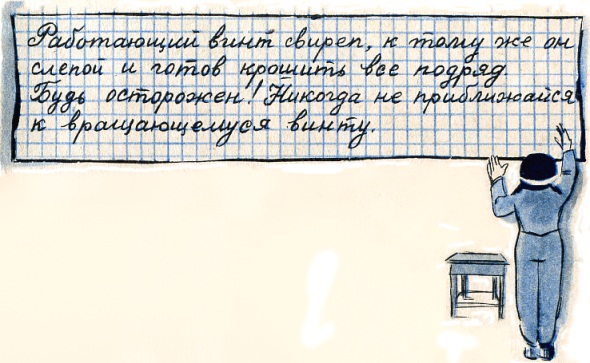 Работающий винт свиреп, к тому же он
слепой и готов крошить все подряд.
Будь осторожен! Никогда не приближайся
к вращающемуся винту.